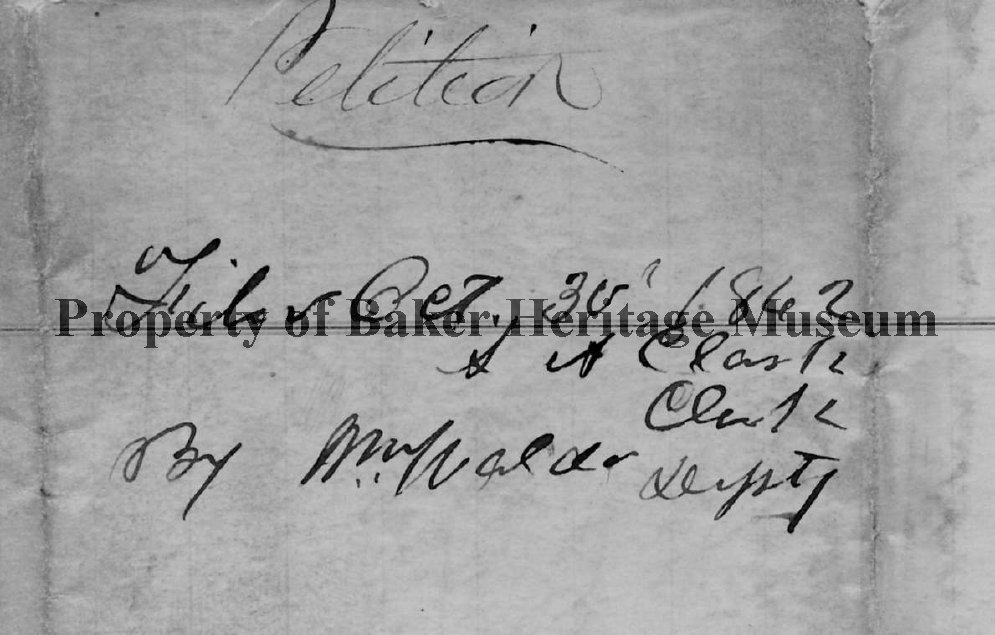 Petition
Filed Oct. 30' 1862
Property of Baker Heritage Museum
A A Clark
Clerk
By Wm Waldo Deputy